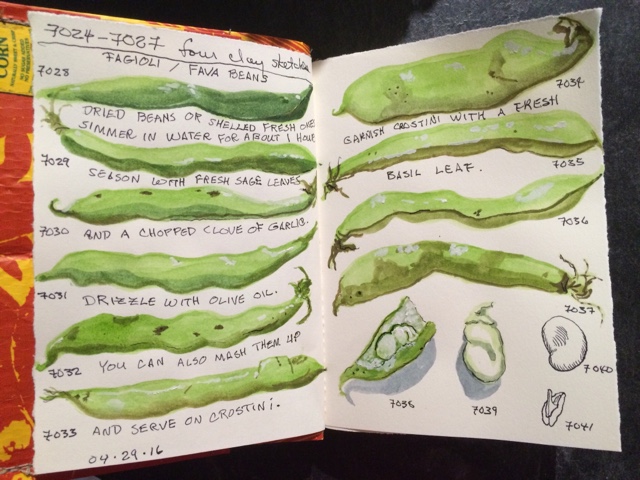 7024-7027 four clay sketches
FAGIOLI / FAVA BEANS
7028
DRIED BEANS OR SHELLED FRESH ONES
SIMMER IN WATER FOR ABOUT 1 HOUR
7029
SEASON WITH FRESH SAGE LEAVES
7030
AND A CHOPPED CLOVE OF GARLIC.
7031
DRIZZLE WITH OLIVE OIL.
7032
YOU CAN ALSO MASH THEM UP
7033
AND SERVE ON CROSTINI.
04.29.16
7034
GARNISH CROSTINI WITH A FRESH
7035
BASIL LEAF.
7036
7037
7038
7039
7040
7041
CORN